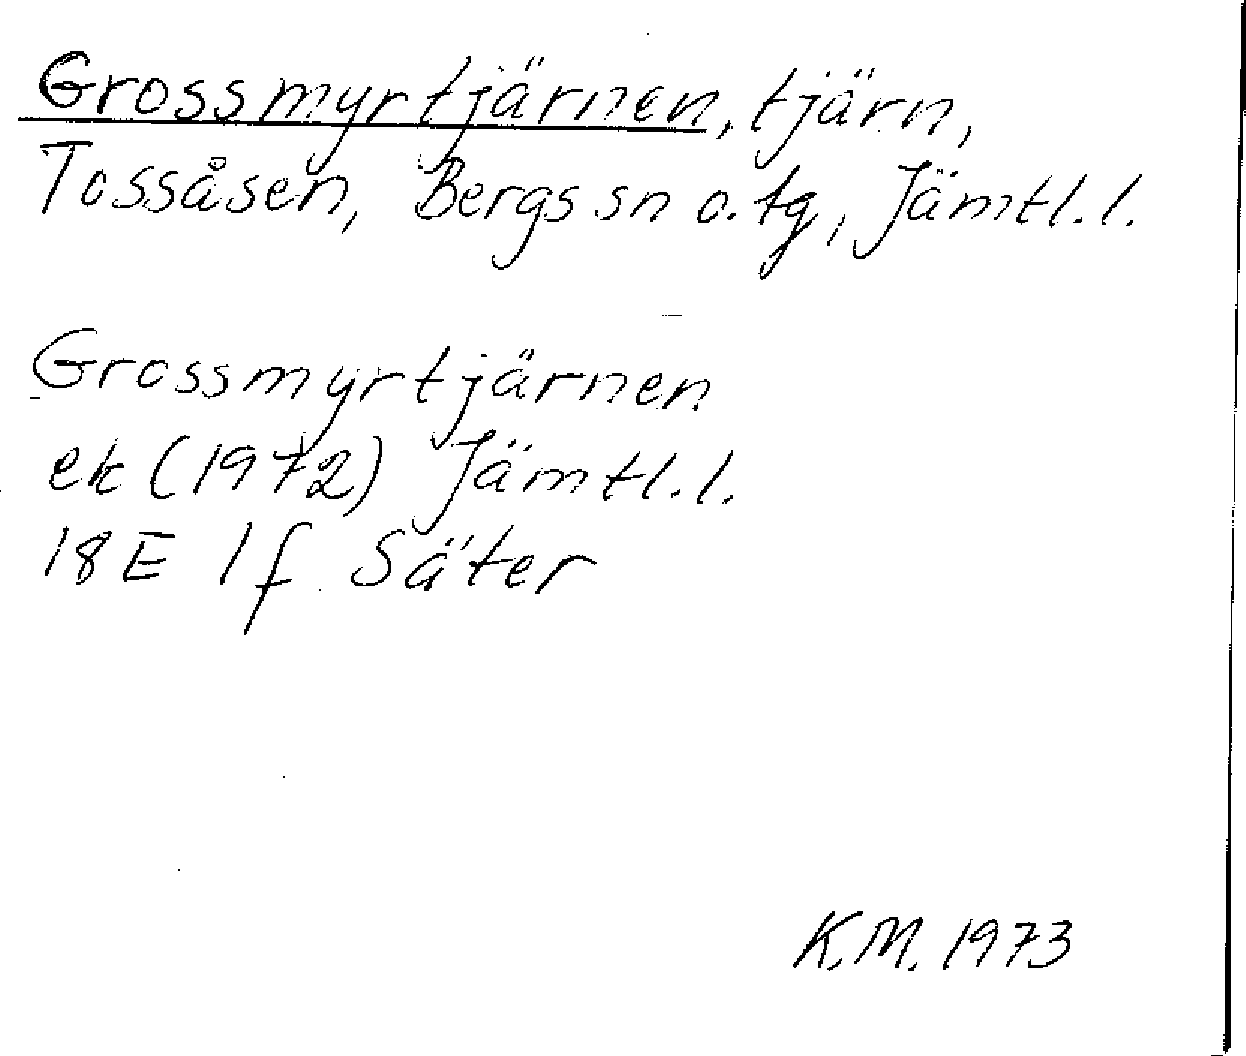 Grossmyrtjärnen, tjärn,
Tossåsen, Bergs sn o. tg, Jämtl. l.
Grossmyrtjärnen
ek (1972) Jämtl. l.
18E 1f Säter
K.M. 1973